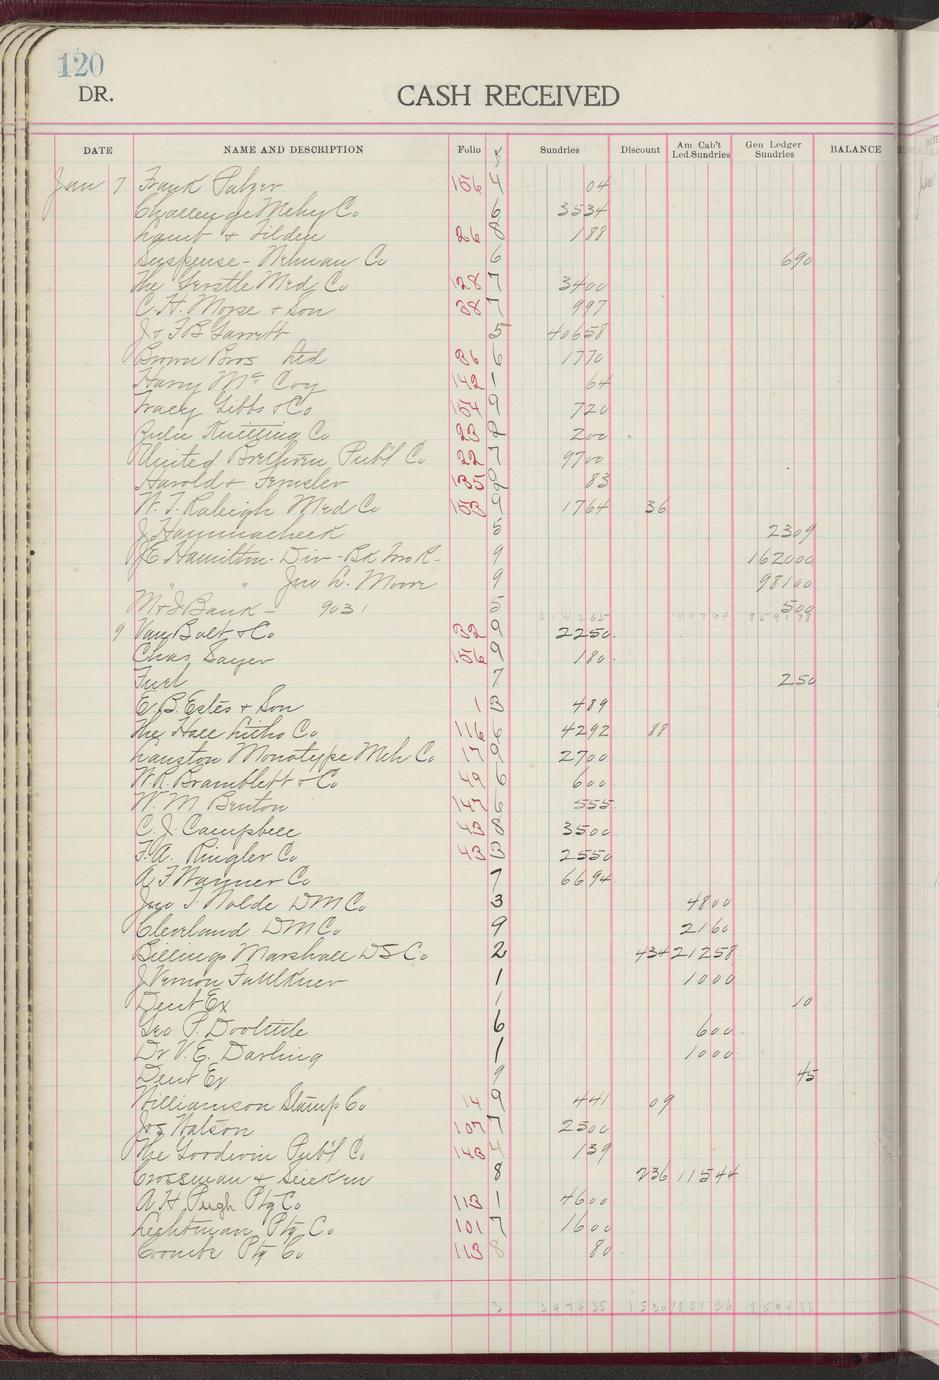 120
DR. CASH RECEIVED
DATE NAME AND DESCRIPTION Folio √ Sundries Discount Am Cab't Led.Sundries Gen Ledger Sundries BALANCE
Jan 7 Frank Pulzer 156 4 04
Challenge Mchy Co 6 3534
Lamb & Tilden 26 8 188
Suspense - Welman Co 6 690
The Gerstle Med Co 128 7 3400
C. H. Morse & Son 38 7 997
J & F B Garrett 5 40658
Brown Bros Ltd 86 6 1770
Harry McCoy 142 1 64
Tracy Gibbs & Co 154 9 720
Knitting Co 23 200
United Brethren Publ Co 22 7 9700
Harold & 135 83
W. T. Raleigh Med Co 153 9 1764 36
J Hammacheck 5 2309
J E Hamilton - Div - Bx 9 162000
" " Jno L. Moore 9 98100
M & J Bank - 9031 5 500
9 Van Bolt & Co 32 9 2250
Chas Sayer 156 9 180
Fuel 7 250
E. B. Estes & Son 1 3 489
The Hall Litho Co 116 6 4292 88
Lanston Monotype Mch Co 17 9 2700
W. R. Bramblett & Co 49 6 600
W. M. Benton 147 6 555
C. J. Campbell 43 8 3500
F. A. Ringler Co 43 3 2550
A F Wanner Co 7 6694
Jno T. Nolde DM Co 3 4800
Cleveland DM Co 9 2160
Billings Marshall DS Co 2 434 21258
J Vernon Faulkner 1 1000
Dent Ex 1 10
Geo P. Doolittle 6 600
Dr V. E. Darling 1 1000
Dent Ex 9 45
Williamson Stamp Co 14 9 441 09
Jos Watson 107 7 2500
The Goodwin Publ Co 143 4 139
Crossman & 8 236 11544
A H Pugh Ptg Co 113 1 4600
Lightman Ptg Co 101 7 1600
Coombe Ptg Co 113 8 80
3